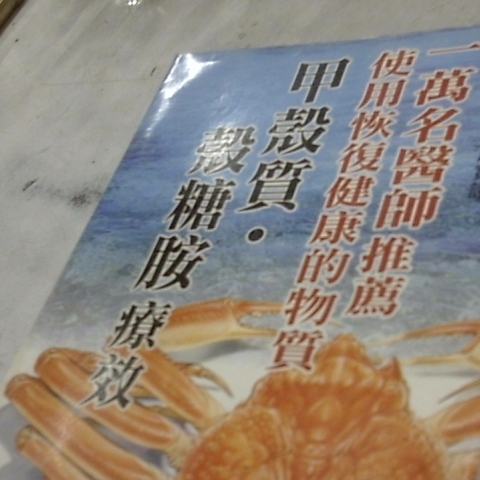 一萬名醫師推薦
使用恢復健康的物質
甲殼質・
殼糖胺療效